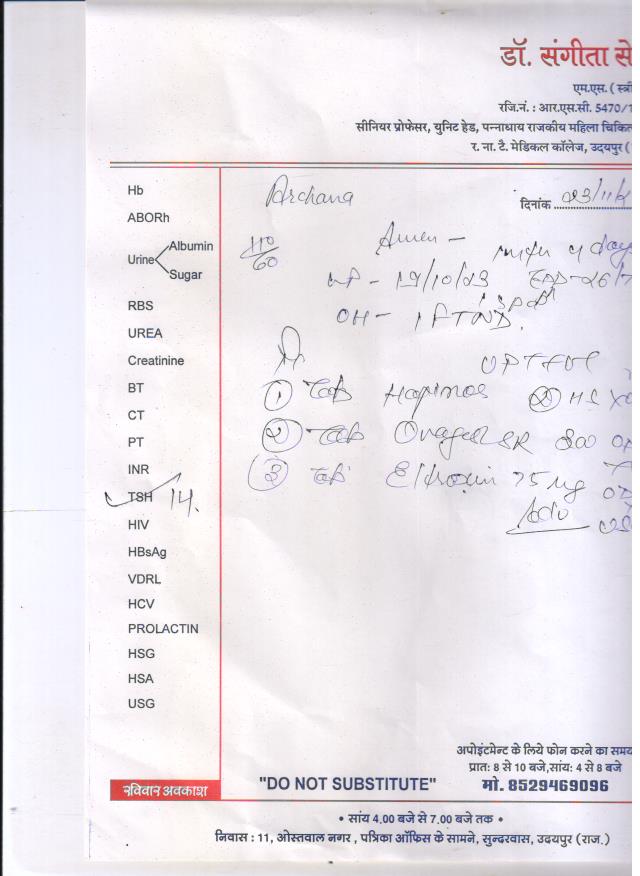 डॉ. संगीता से
एम.एस. ( स्त्री
रजि.नं. : आर.एस.सी. 5470/1
सीनियर प्रोफेसर, युनिट हेड, पन्नाधाय राजकीय महिला चिकि
र. ना. टै. मेडिकल कॉलेज, उदयपुर (
Hb
Archana
दिनांक 23/11/
ABORh
Urine Albumin
Sugar
110/60
days
19/10/23
RBS
OH- 1 FTND.
UREA
Creatinine
UPT
BT
① Tab HS
CT
② Tab SR 200
PT
INR
③ Tab Eltroxin 75 OD
TSH 14.
Adv
HIV
HBsAg
VDRL
HCV
PROLACTIN
HSG
HSA
USG
अपोइंटमेन्ट के लिये फोन करने का समय
प्रात: 8 से 10 बजे,सांय: 4 से 8 बजे
रविवार अवकाश
"DO NOT SUBSTITUTE"
मो. 8529469096
• सांय 4.00 बजे से 7.00 बजे तक •
निवास : 11, ओस्तवाल नगर , पत्रिका ऑफिस के सामने, सुन्दरवास, उदयपुर (राज.)